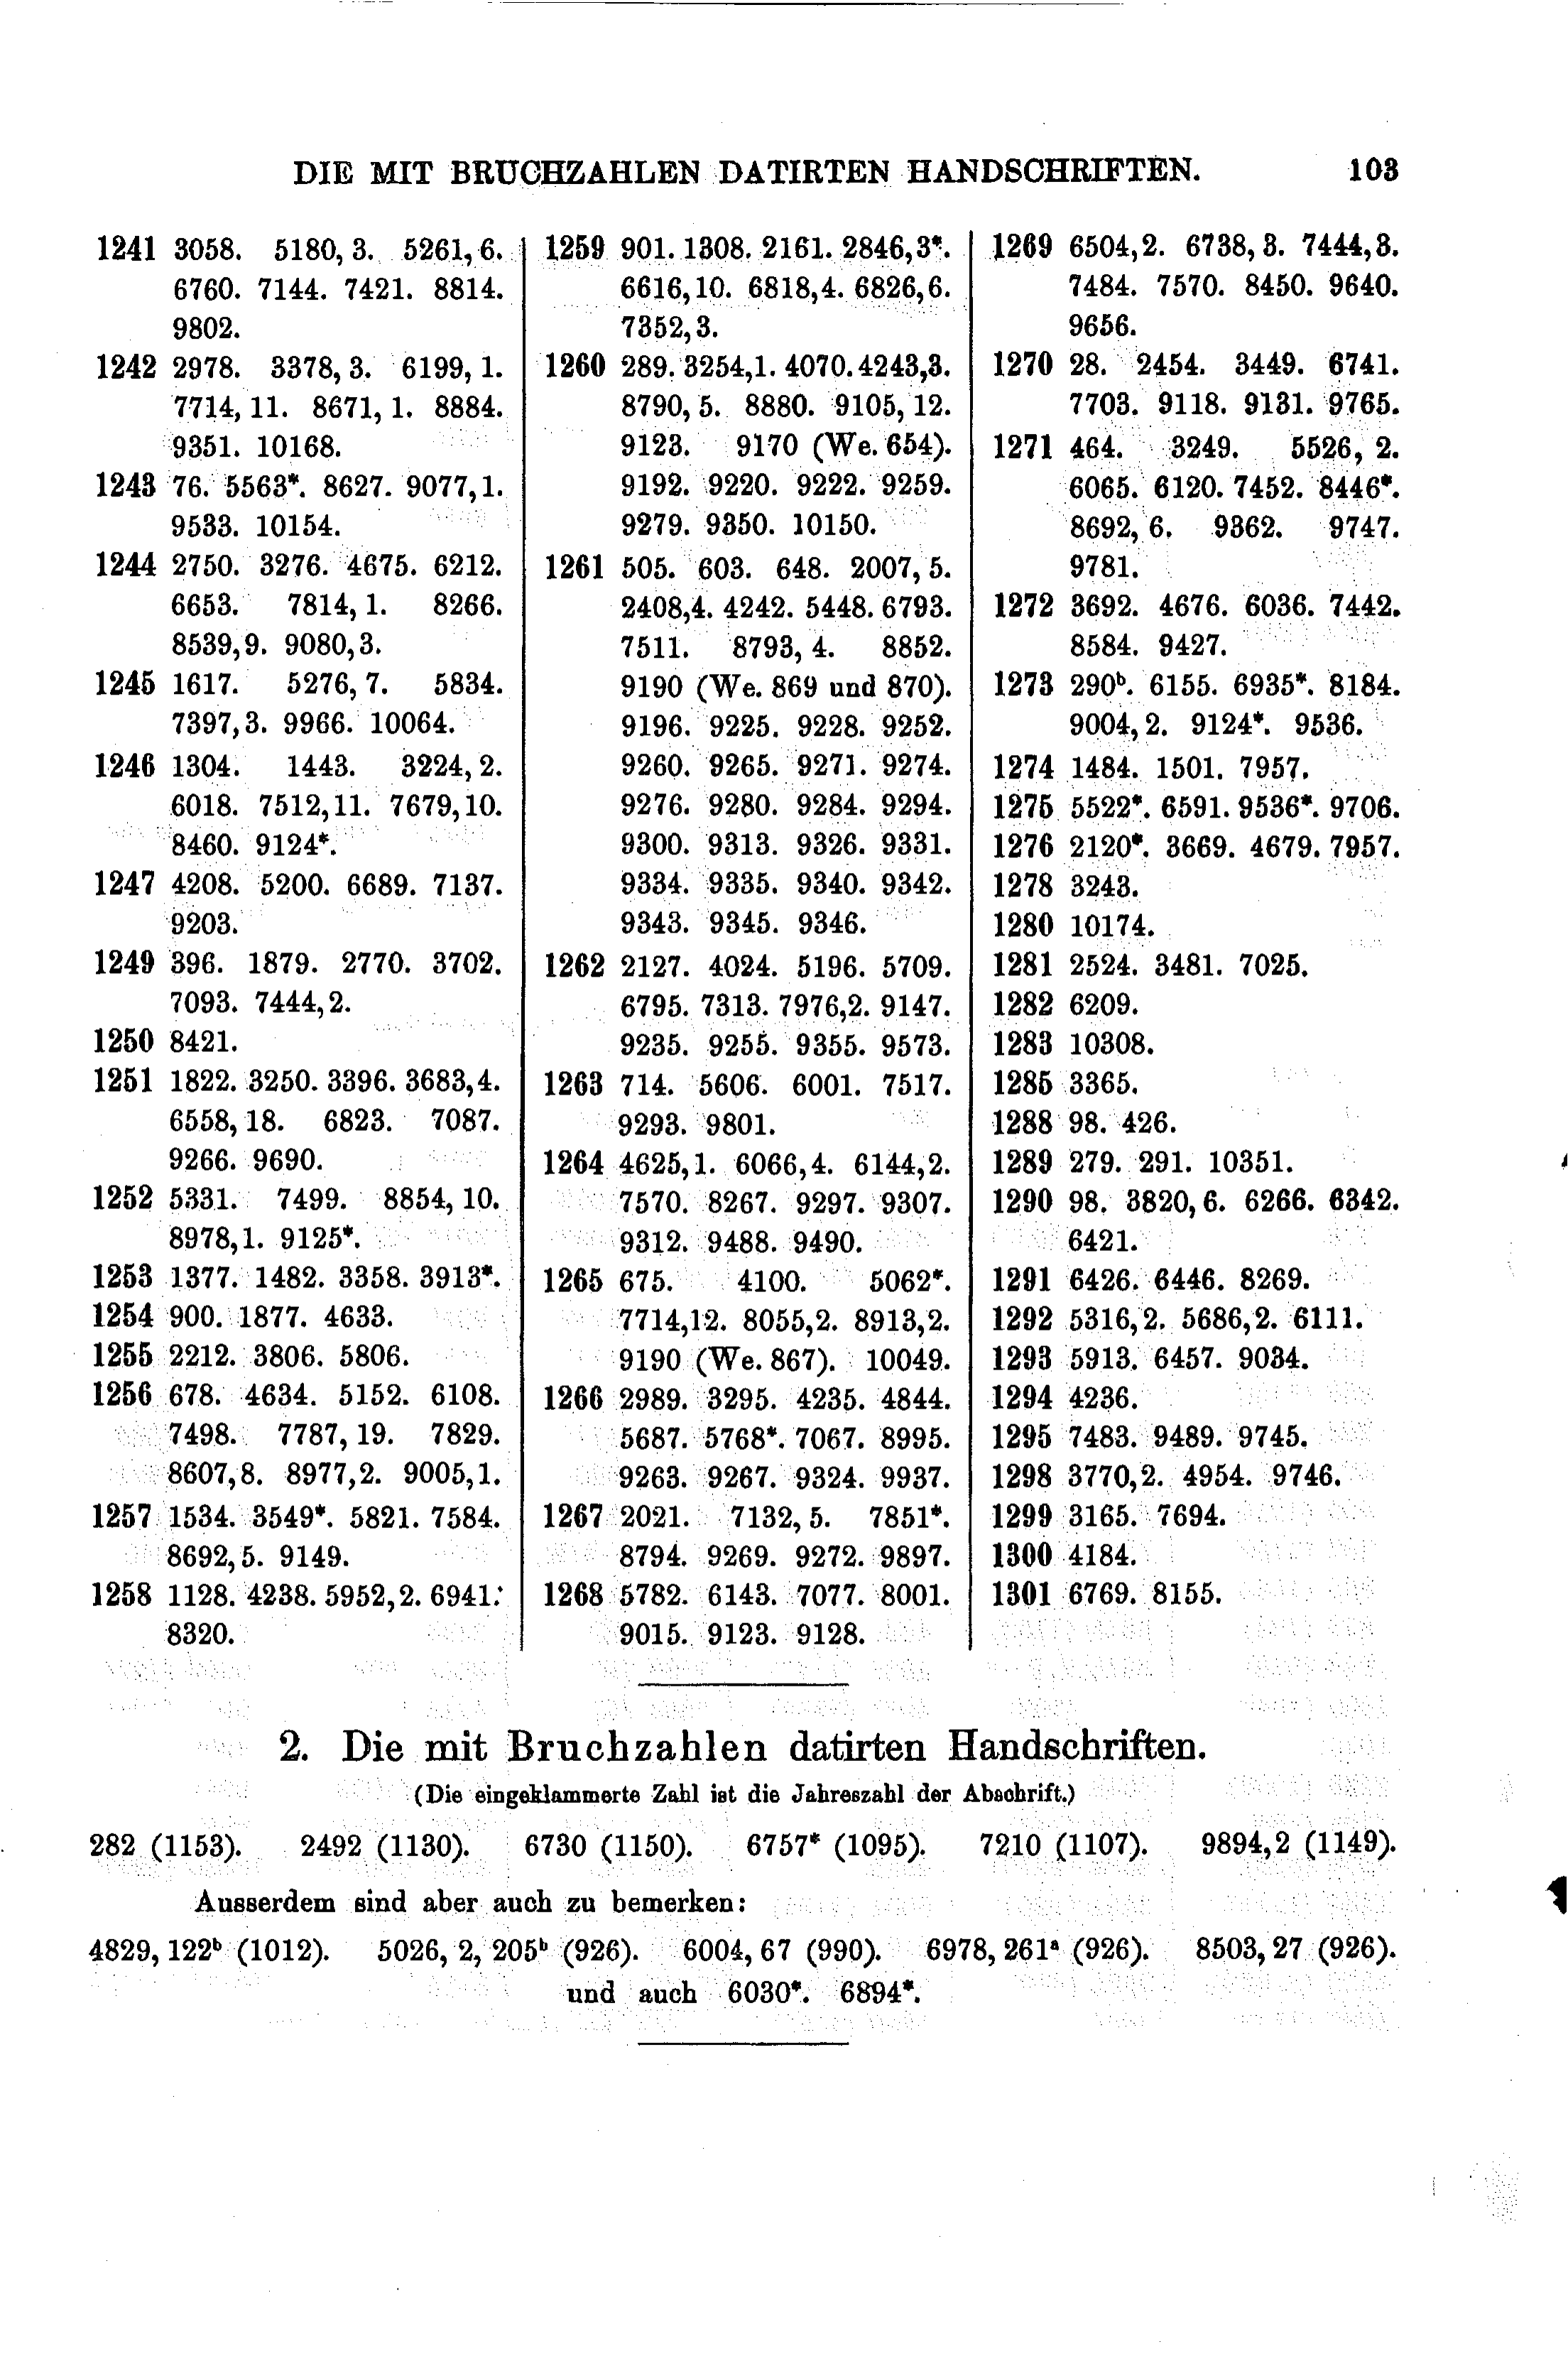 DIE MIT BRUCHZAHLEN DATIRTEN HANDSCHRIFTEN. 103
1241 3058. 5180, 3. 5261, 6.
6760. 7144. 7421. 8814.
9802.
1242 2978. 3378, 3. 6199, 1.
7714, 11. 8671, 1. 8884.
9351. 10168.
1243 76. 5563*. 8627. 9077,1.
9533. 10154.
1244 2750. 3276. 4675. 6212.
6653. 7814, 1. 8266.
8539,9. 9080,3.
1245 1617. 5276, 7. 5834.
7397,3. 9966. 10064.
1246 1304. 1443. 3224, 2.
6018. 7512,11. 7679,10.
8460. 9124*.
1247 4208. 5200. 6689. 7137.
9203.
1249 396. 1879. 2770. 3702.
7093. 7444,2.
1250 8421.
1251 1822. 3250. 3396. 3683,4.
6558, 18. 6823. 7087.
9266. 9690.
1252 5331. 7499. 8854, 10.
8978,1. 9125*.
1253 1377. 1482. 3358. 3913*.
1254 900. 1877. 4633.
1255 2212. 3806. 5806.
1256 678. 4634. 5152. 6108.
7498. 7787, 19. 7829.
8607,8. 8977,2. 9005,1.
1257 1534. 3549*. 5821. 7584.
8692,5. 9149.
1258 1128. 4238. 5952,2. 6941.
8320.
1259 901. 1308. 2161. 2846,3*.
6616,10. 6818,4. 6826,6.
7352,3.
1260 289. 3254,1. 4070. 4243,3.
8790, 5. 8880. 9105, 12.
9123. 9170 (We. 654).
9192. 9220. 9222. 9259.
9279. 9350. 10150.
1261 505. 603. 648. 2007, 5.
2408,4. 4242. 5448. 6793.
7511. 8793, 4. 8852.
9190 (We. 869 und 870).
9196. 9225. 9228. 9252.
9260. 9265. 9271. 9274.
9276. 9280. 9284. 9294.
9300. 9313. 9326. 9331.
9334. 9335. 9340. 9342.
9343. 9345. 9346.
1262 2127. 4024. 5196. 5709.
6795. 7313. 7976,2. 9147.
9235. 9255. 9355. 9573.
1263 714. 5606. 6001. 7517.
9293. 9801.
1264 4625,1. 6066,4. 6144,2.
7570. 8267. 9297. 9307.
9312. 9488. 9490.
1265 675. 4100. 5062*.
7714,12. 8055,2. 8913,2.
9190 (We. 867). 10049.
1266 2989. 3295. 4235. 4844.
5687. 5768*. 7067. 8995.
9263. 9267. 9324. 9937.
1267 2021. 7132, 5. 7851*.
8794. 9269. 9272. 9897.
1268 5782. 6143. 7077. 8001.
9015. 9123. 9128.
1269 6504,2. 6738, 3. 7444,3.
7484. 7570. 8450. 9640.
9656.
1270 28. 2454. 3449. 6741.
7703. 9118. 9131. 9765.
1271 464. 3249. 5526, 2.
6065. 6120. 7452. 8446*.
8692, 6. 9362. 9747.
9781.
1272 3692. 4676. 6036. 7442.
8584. 9427.
1273 290ᵇ. 6155. 6935*. 8184.
9004, 2. 9124*. 9536.
1274 1484. 1501. 7957.
1275 5522*. 6591. 9536*. 9706.
1276 2120*. 3669. 4679. 7957.
1278 3243.
1280 10174.
1281 2524. 3481. 7025.
1282 6209.
1283 10308.
1285 3365.
1288 98. 426.
1289 279. 291. 10351.
1290 98. 3820, 6. 6266. 6342.
6421.
1291 6426. 6446. 8269.
1292 5316,2. 5686,2. 6111.
1293 5913. 6457. 9034.
1294 4236.
1295 7483. 9489. 9745.
1298 3770,2. 4954. 9746.
1299 3165. 7694.
1300 4184.
1301 6769. 8155.
2. Die mit Bruchzahlen datirten Handschriften.
(Die eingeklammerte Zahl ist die Jahreszahl der Abschrift.)
282 (1153). 2492 (1130). 6730 (1150). 6757* (1095). 7210 (1107). 9894,2 (1149).
Ausserdem sind aber auch zu bemerken:
4829, 122ᵇ (1012). 5026, 2, 205ᵇ (926). 6004, 67 (990). 6978, 261ᵃ (926). 8503, 27 (926).
und auch 6030*. 6894*.